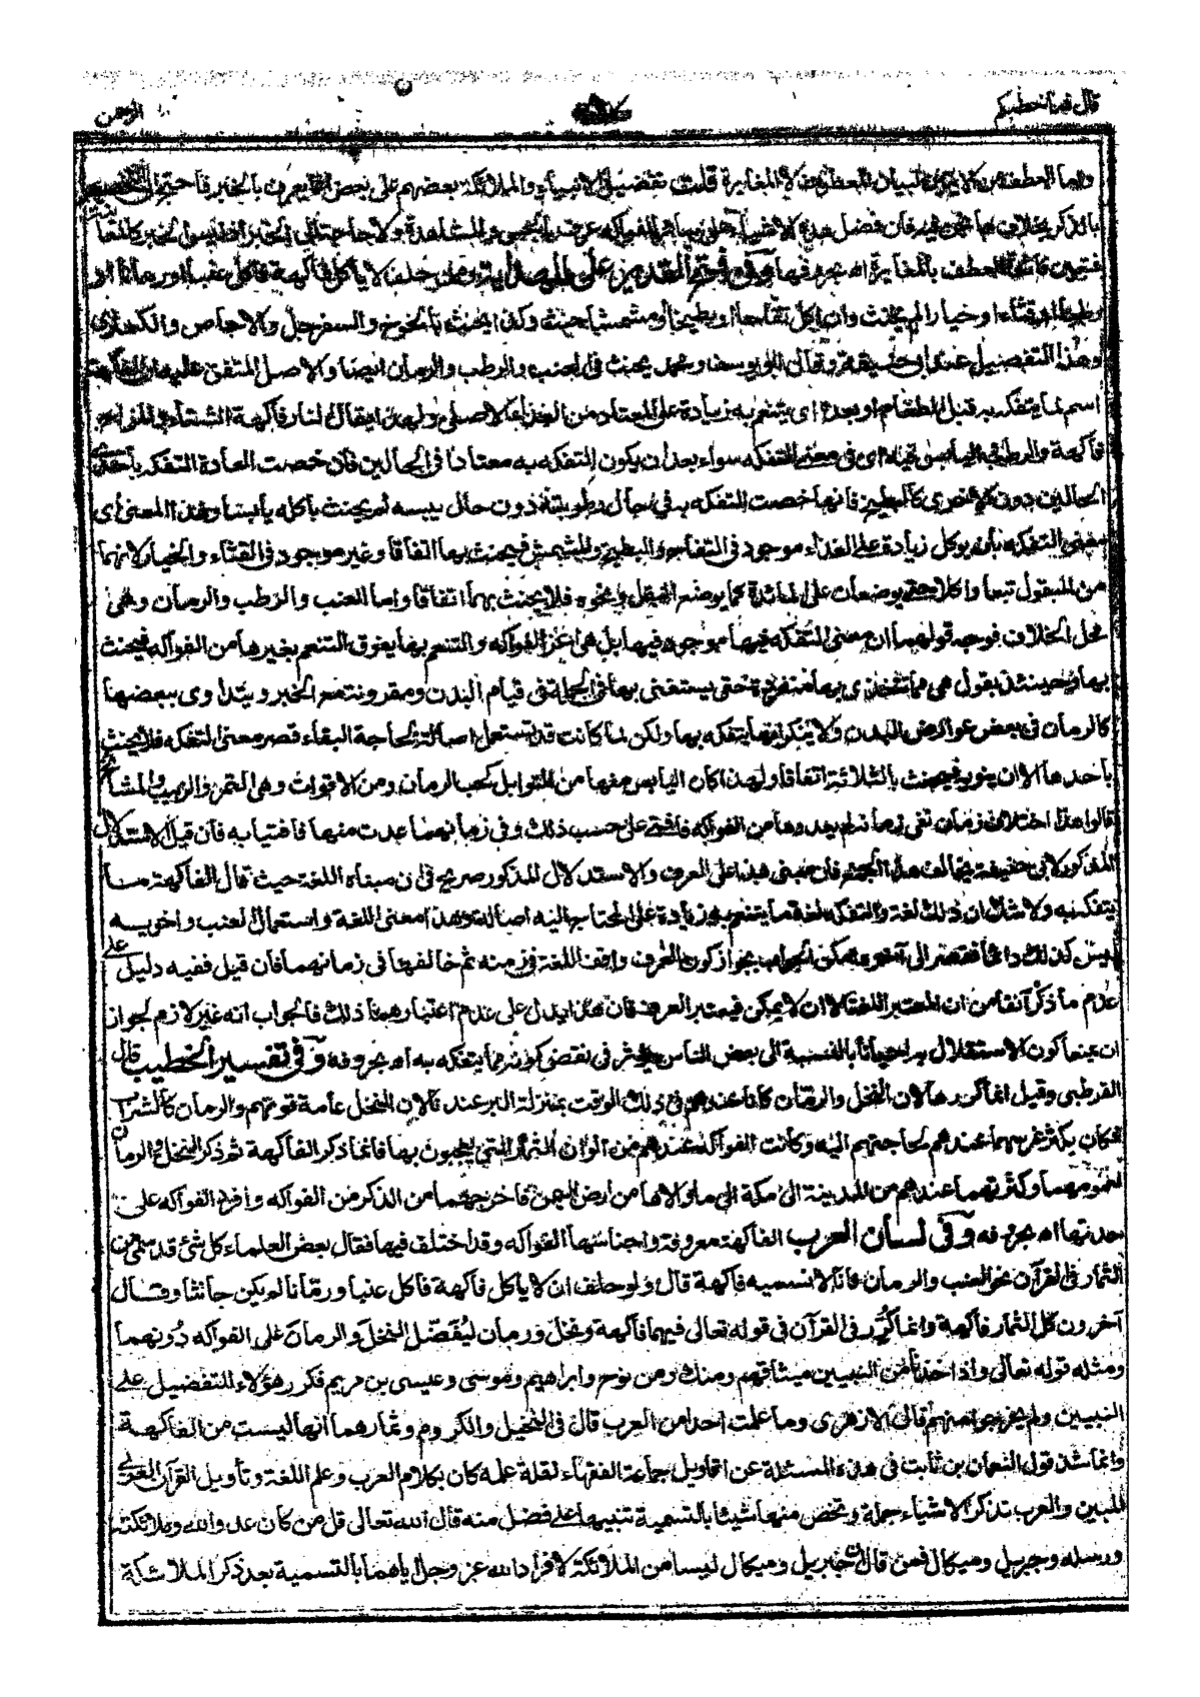 قال فما خطبكم
الرحمن
بالذكر بخلاف فان فضل هذه الاشياء على سائر الفواكه
العطف بالمغايرة اه بحروفها وفى فتح القدير ومن حلف لا ياكل فاكهة فاكل عنبا او رمانا او
رطبا او قثاء او خيارا لم يحنث وان اكل تفاحا او بطيخا او مشمشا حنث وكذا يحنث بالخوخ والسفرجل والاجاص والكمثرى
وهذا التفصيل عند ابى حنيفة وقال ابو يوسف ومحمد يحنث فى العنب والرطب والرمان ايضا والاصل المتفق عليه ان الفاكهة
اسم لما يتفكه به قبل الطعام او بعده اى يتنعم به زيادة على المعتاد من الغذاء الاصلى ولهذا يقال لنار فاكهة الشتاء
فاكهة والرطب واليابس فيه اى فى معنى التفكه سواء بعد ان يكون التفكه به معتادا فى الحالين فان خصت العادة التفكه باحدى
الحالين دون الاخرى كالبطيخ فانها خصت التفكه به فى حال رطوبته دون حال يبسه لم يحنث باكله يابسا وهذا المعنى اى
معنى التفكه بأن يوكل زيادة على الغذاء موجود فى التفاح والبطيخ والمشمش فيحنث بها اتفاقا وغير موجود فى القثاء والخيار لانهما
من البقول بيعا واكلا حتى يوضعان على المائدة كما يوضع البقل ونحوه فلا يحنث بهما اتفاقا واما العنب والرطب والرمان وهى
محل الخلاف فوجه قولهما ان معنى التفكه فيها موجود فيها بل هى اعز الفواكه والتنعم بها يفوق التنعم بغيرها من الفواكه فيحنث
بها وابو حنيفة يقول هى مما يتغذى بها منفردة حتى يستغنى بها فى الجملة فى قيام البدن ومقرونة مع الخبز ويتداوى ببعضها
كالرمان فى بعض عوارض البدن ولا ينكر انها يتفكه بها ولكن لما كانت قد تستعمل اصالة لحاجة البقاء قصر معنى التفكه فلا يحنث
بأحدها الا ان ينويه فيحنث بالثلاثة اتفاقا ولهذا كان اليابس منها من التوابل كحب الرمان ومن الاقوات وهى التمر والزبيب والمشايخ
قالوا هذا اختلاف زمان ففى زمانه لا يعدونها من الفواكه فافتى على حسب ذلك وفى زمانهما عدت منها فافتيا به فان قيل الاستدلال
المذكور لابى حنيفة يخالف هذا الجمع فان مبنى هذا على العرف والاستدلال المذكور صريح فى ان مبناه اللغة حيث قال الفاكهة ما
يتفكه به ولا شك ان ذلك لغة والتفكه لغة ما يتنعم به زيادة على المحتاج اليه اصالة وهذا معنى اللغة واستعمال العنب واخويه
ليس كذلك دائما فقصر الى آخره يمكن الجواب بجواز كون العرف وافق اللغة فى زمنه ثم خالفها فى زمانهما فان قيل ففيه دليل على
عدم ما ذكر آنفا من ان المعتبر اللغة الا ان لا يمكن فيعتبر العرف فان هذا يدل على عدم اعتبارهما ذلك فالجواب انه غير لازم لجواز
ان يمنعا كون الاستقلال به احيانا بالنسبة الى بعض الناس يؤثر فى نقض كونه مما يتفكه به اه بحروفه وفى تفسير الخطيب قال
القرطبى وقيل انما كررها لان النخل والرمان كانا عندهم فى ذلك الوقت بمنزلة البر عندنا لان النخل عامة قوتهم والرمان كالشراب
فكان يكثر غرسهما عندهم لحاجتهم اليه وكانت الفواكه عندهم من الوان الثمار التى يعجبون بها فانما ذكر الفاكهة ثم ذكر النخل والرمان
لعمومهما وكثرتهما عندهم من المدينة الى مكة الى ما والاها من ارض اليمن فاخرجهما من الذكر من الفواكه وافرد الفواكه على
حدتها اه بحروفه وفى لسان العرب الفاكهة معروفة واجناسها الفواكه وقد اختلف فيها فقال بعض العلماء كل شئ قد سمى من
الثمار فى القرآن نحو العنب والرمان فانا لا نسميه فاكهة قال ولو حلف ان لا ياكل فاكهة فاكل عنبا ورمانا لم يكن حانثا وقال
آخرون كل الثمار فاكهة وانما كُرِّر فى القرآن فى قوله تعالى فيهما فاكهة ونخل ورمان ليُفضّل النخل والرمان على الفواكه دونهما
ومثله قوله تعالى واذ اخذنا من النبيين ميثاقهم ومنك ومن نوح وابراهيم وموسى وعيسى بن مريم فكرر هؤلاء للتفضيل على
النبيين ولم يخرجوا منهم قال الازهرى وما علمت احدا من العرب قال فى النخيل والكروم وثمارهما انها ليست من الفاكهة
وانما شذ قول النعمان بن ثابت فى هذه المسئلة عن اقاويل جماعة الفقهاء لقلة علمه كان بكلام العرب وعلم اللغة وتأويل القرآن العربى
المبين والعرب تذكر الاشياء جملة وتخص منها شيئا بالتسمية تنبيها على فضل منه قال الله تعالى قل من كان عدوا لله وملائكته
ورسله وجبريل وميكال فمن قال ان جبريل وميكال ليسا من الملائكة لافراد الله عز وجل اياهما بالتسمية بعد ذكر الملائكة